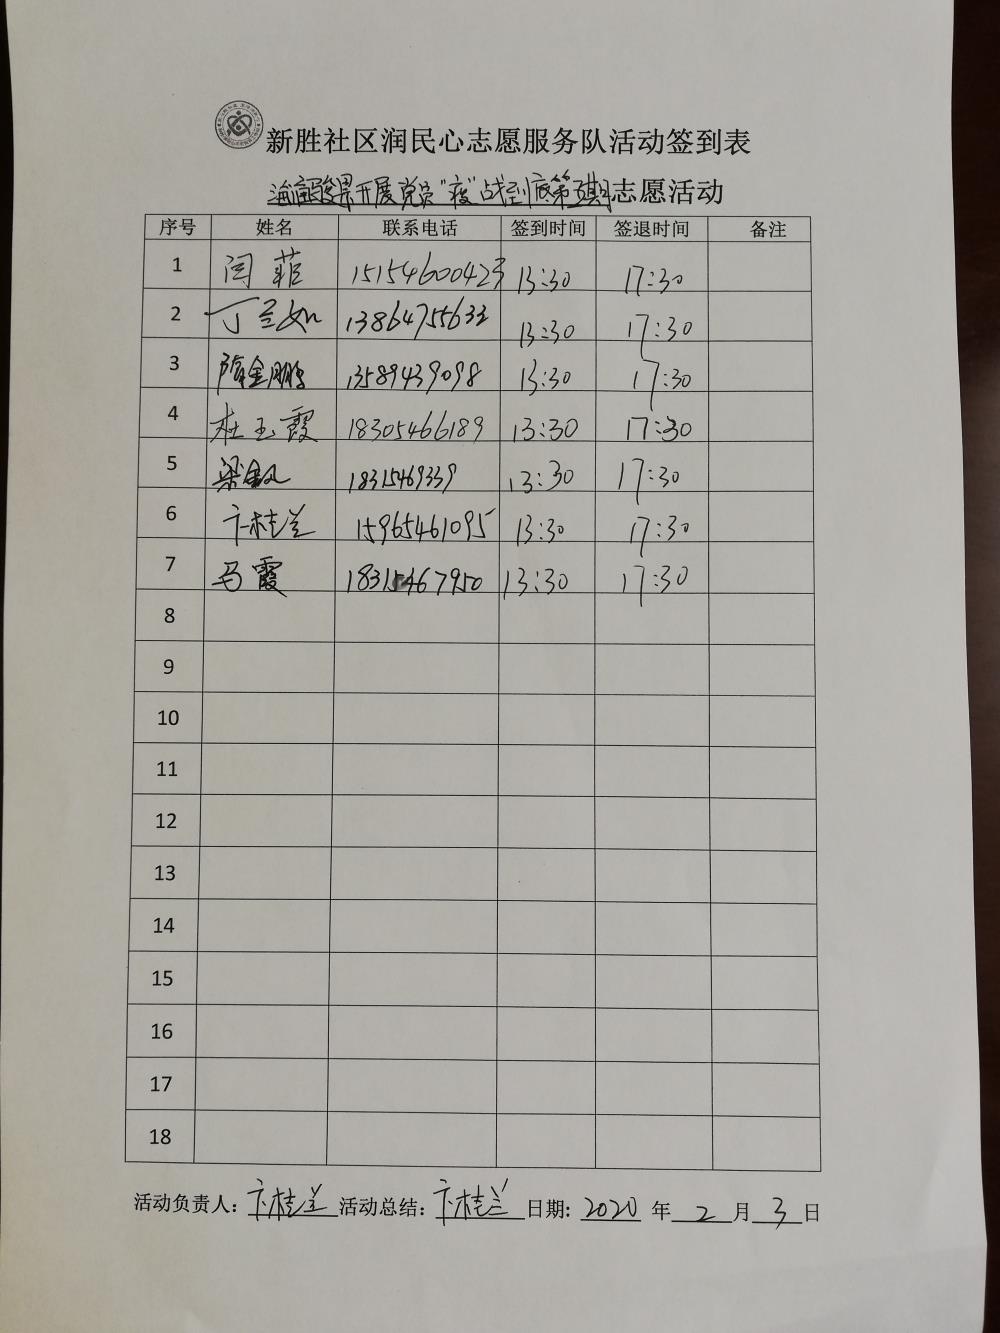 新胜社区润民心志愿服务队活动签到表
开展党员"疫"战到底第五期志愿活动
序号 姓名 联系电话 签到时间 签退时间 备注
1 闫菲 15154600423 13:30 17:30
2 丁兰如 13864755632 13:30 17:30
3 隋金鹏 13589439098 13:30 17:30
4 杜玉霞 18305466189 13:30 17:30
5 梁 18315469339 13:30 17:30
6 卞桂兰 15965461095 13:30 17:30
7 马霞 18315467950 13:30 17:30
8
9
10
11
12
13
14
15
16
17
18
活动负责人: 卞桂兰 活动总结: 卞桂兰 日期: 2020 年 2 月 3 日